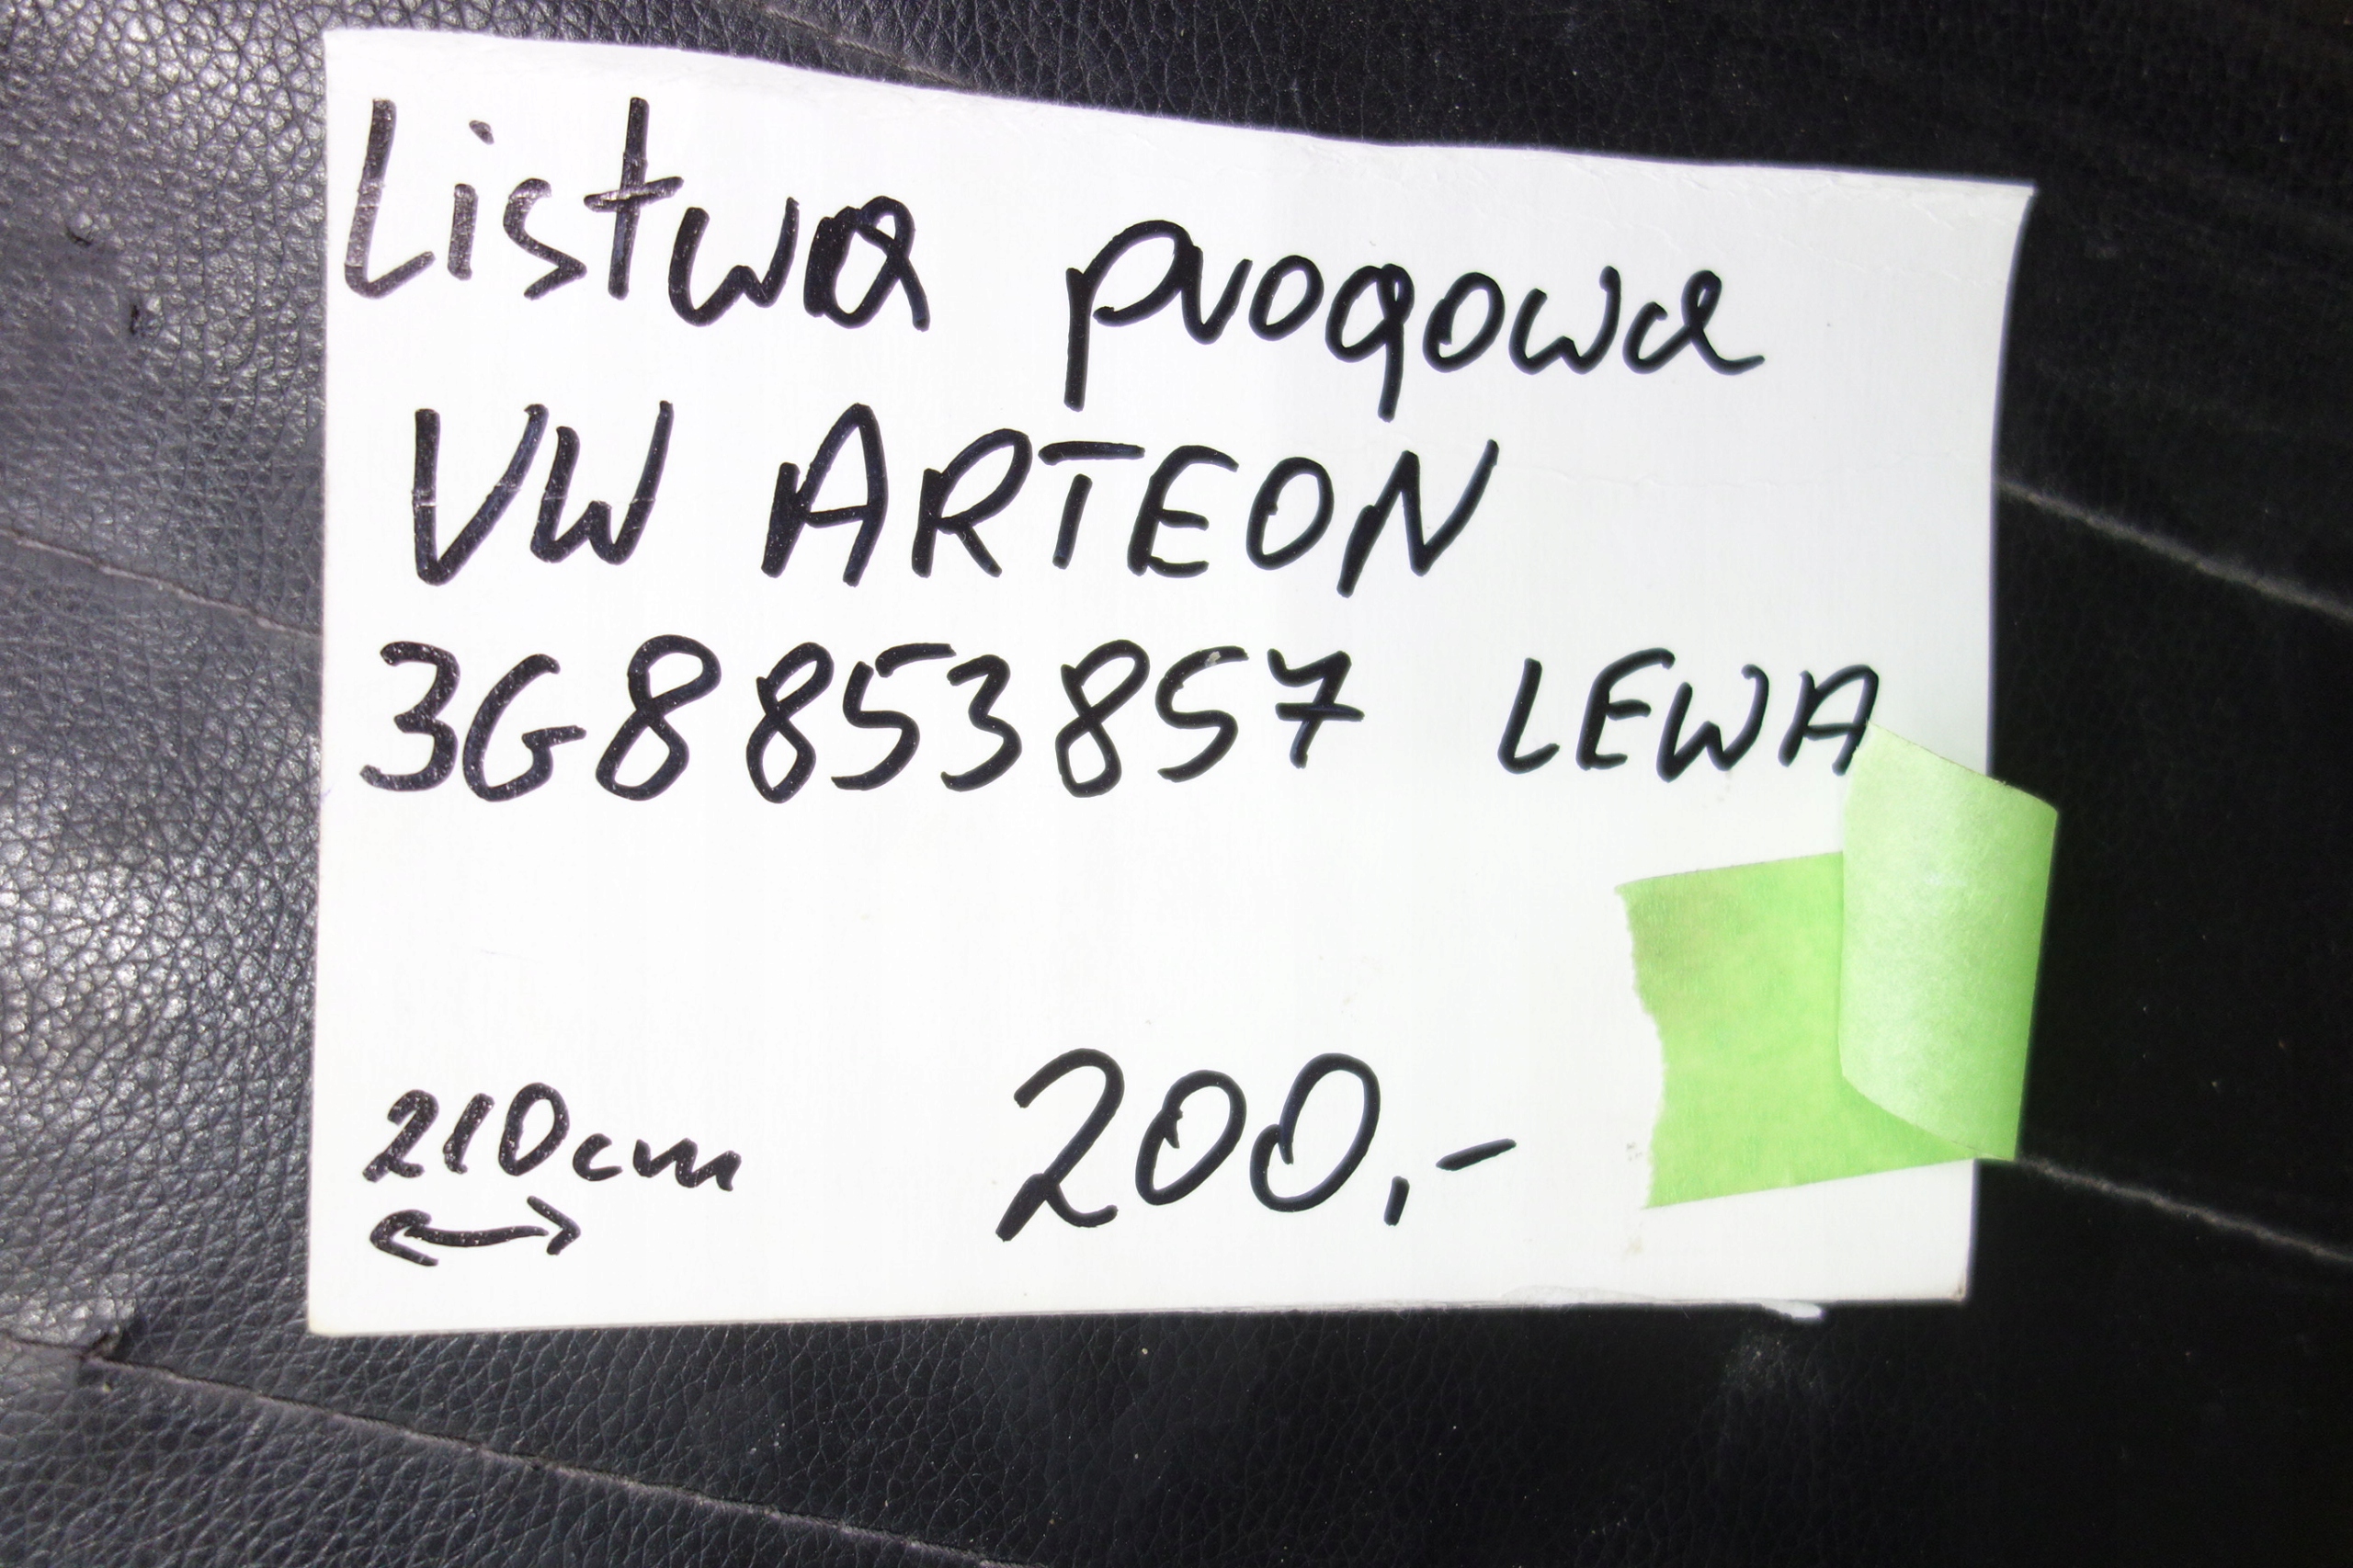 Listwa progowa
VW ARTEON
3G8853857 LEWA
210cm
200,-